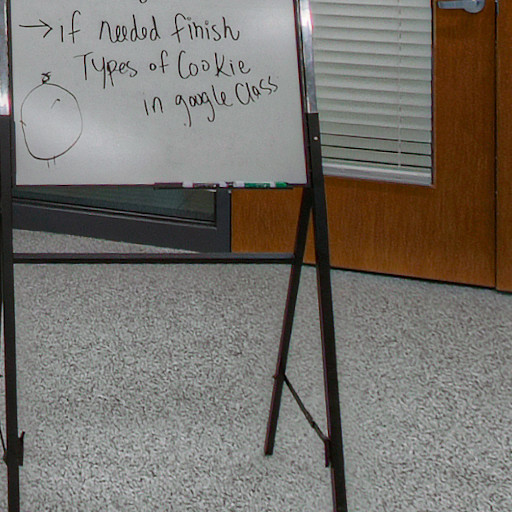 → if needed finish
Types of Cookie
in google Class